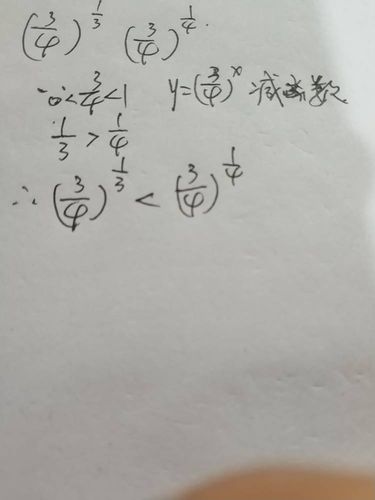 (3/4)^(1/3) (3/4)^(1/4).
∵0<3/4<1 y=(3/4)^x 减函数
1/3 > 1/4
∴ (3/4)^(1/3) < (3/4)^(1/4)